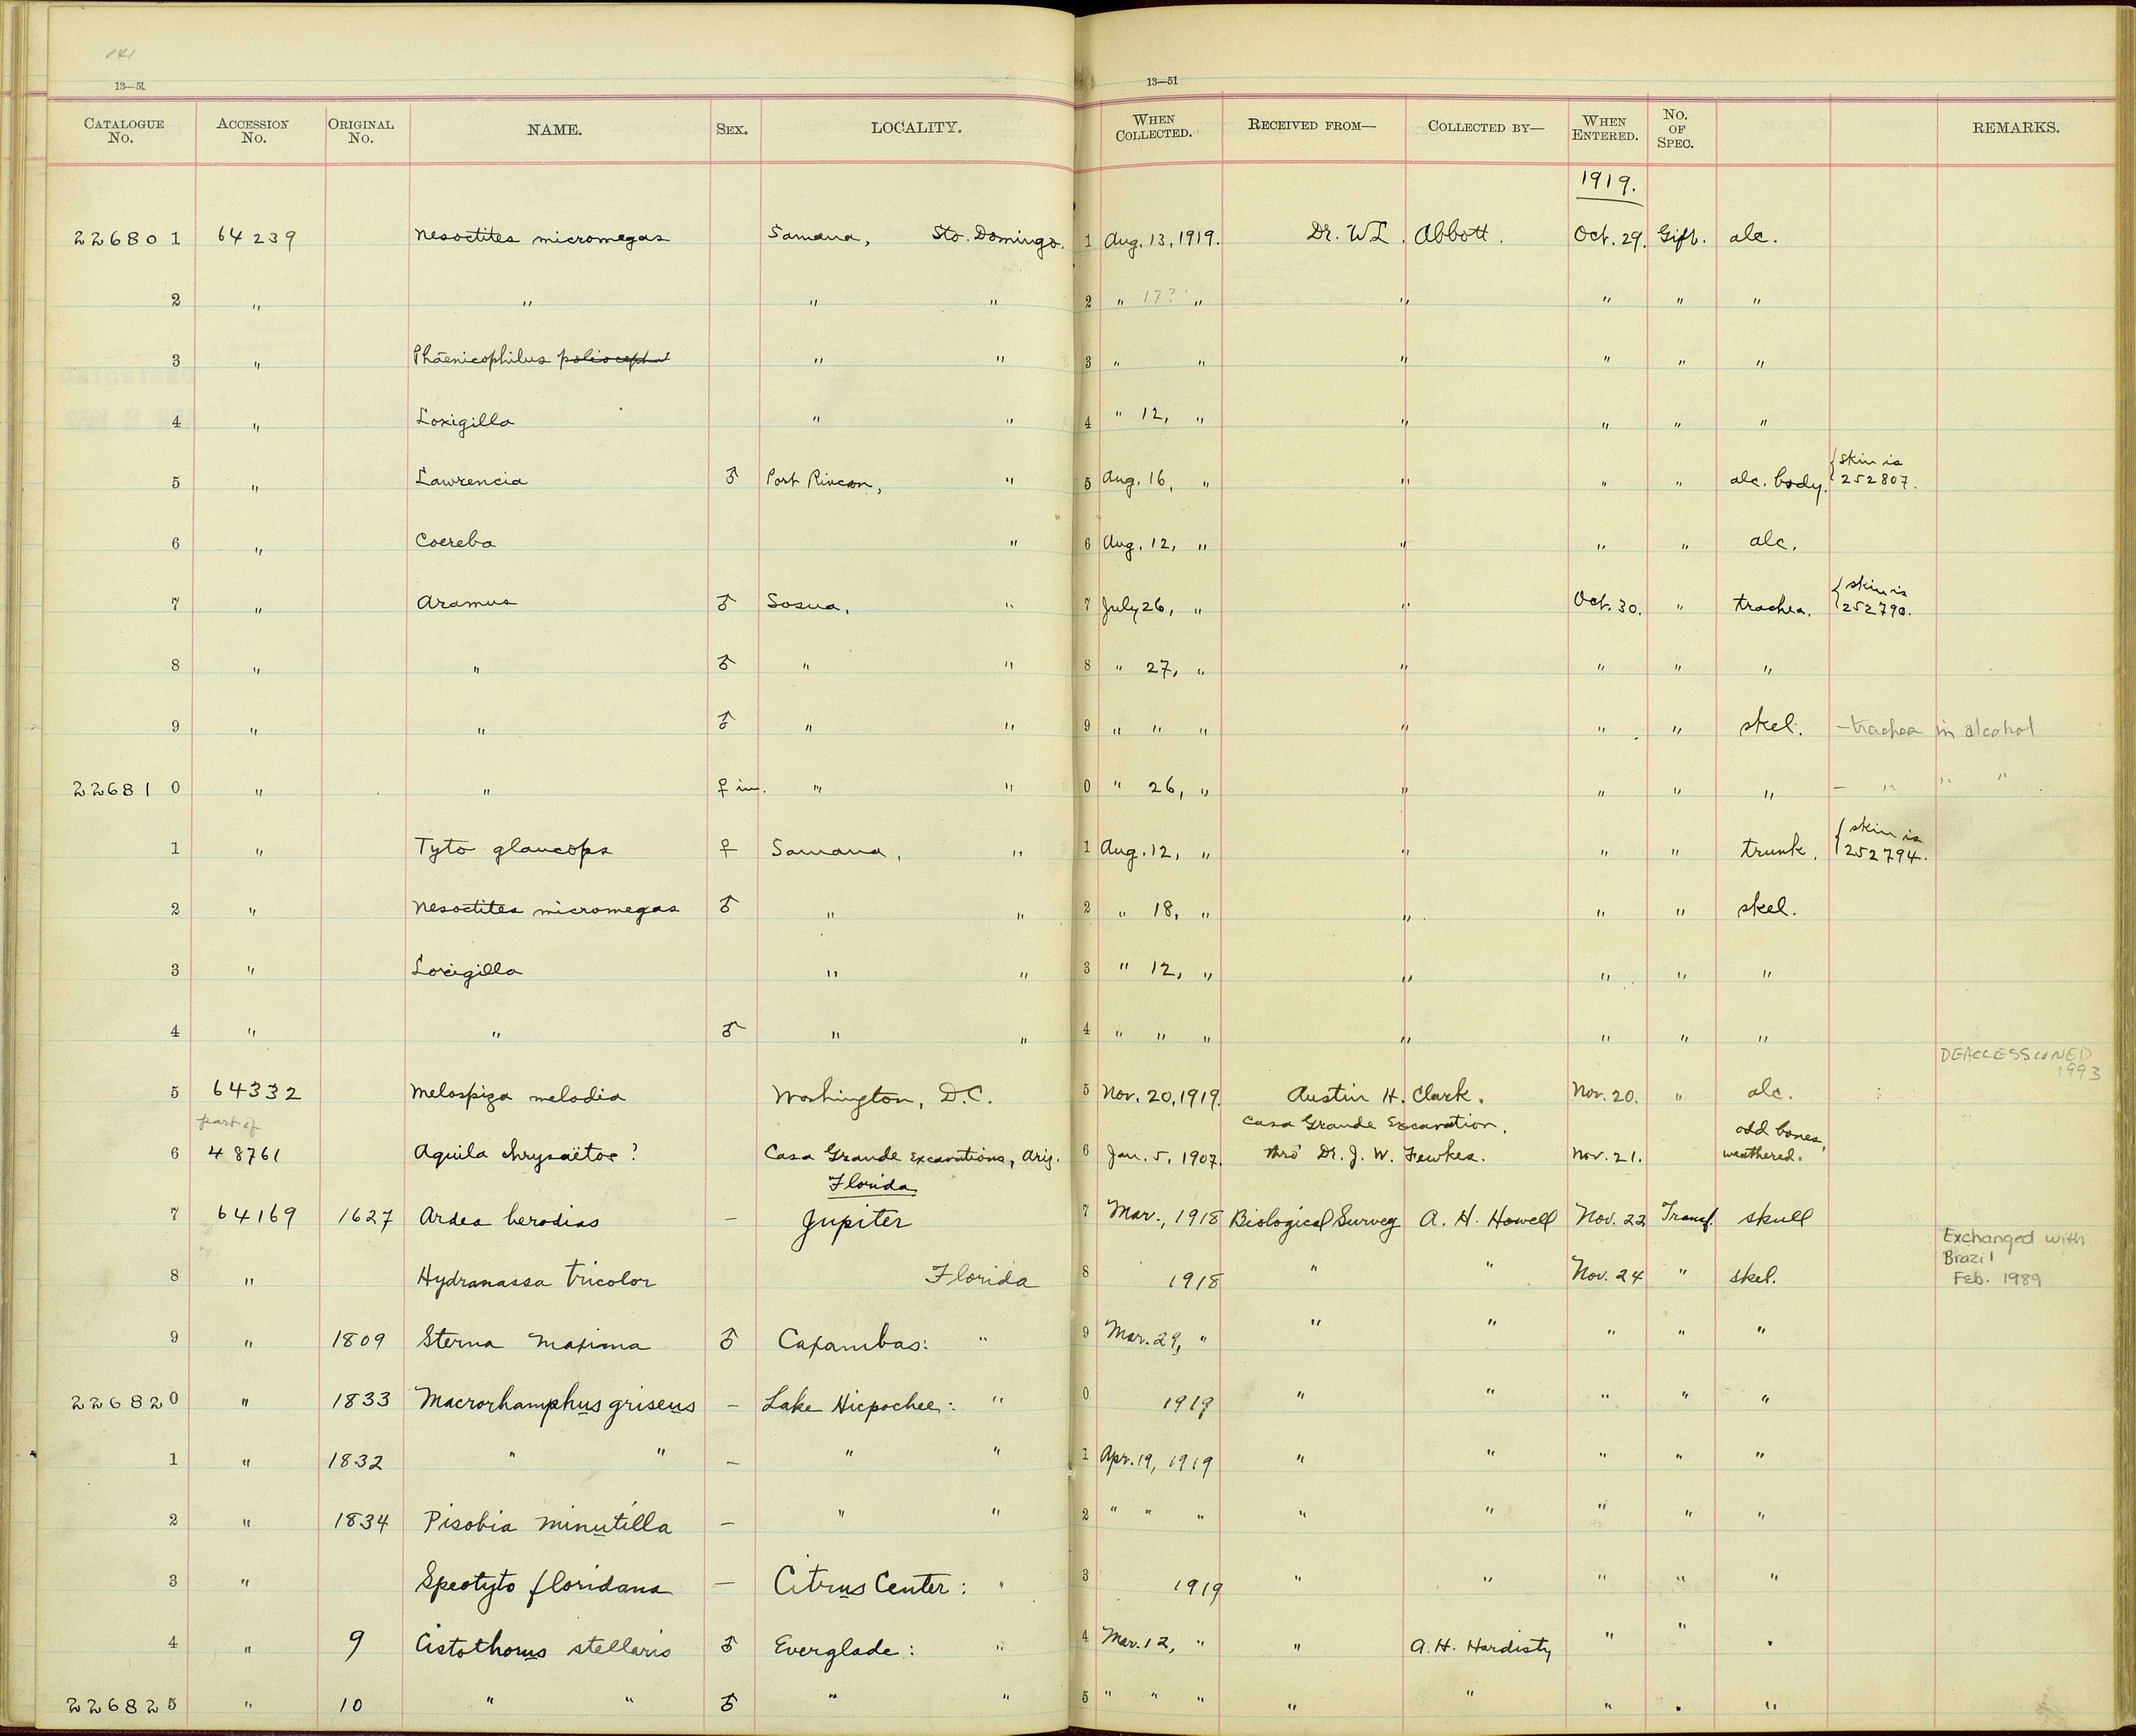 141
13—51 13—51
CATALOGUE No. ACCESSION No. ORIGINAL No. NAME. SEX. LOCALITY. WHEN COLLECTED. RECEIVED FROM— COLLECTED BY— WHEN ENTERED. No. OF SPEC. REMARKS.
1919.
226801 64239 Nesoctites micromegas Samana, Sto. Domingo. 1 Aug. 13, 1919. Dr. W L. Abbott. Oct. 29. Gift. alc.
2 " " " " 2 " 17? " " " " "
3 " Phaenicophilus poliocephal " " 3 " " " " " "
4 " Loxigilla " " 4 " 12, " " " " "
5 " Lawrencia ♂ Port Rincon, " 5 Aug. 16, " " " " alc. body. { skin is 252807.
6 " Coereba " 6 Aug. 12, " " " " alc.
7 " Aramus ♂ Sosua, " 7 July 26, " " Oct. 30. " trachea. { skin is 252790.
8 " " ♂ " " 8 " 27, " " " " "
9 " " ♂ " " 9 " " " " " " skel. - trachea in alcohol
226810 " " ♀ im. " " 0 " 26, " " " " " - " " "
1 " Tyto glaucops ♀ Samana, " 1 Aug. 12, " " " " trunk. { skin is 252794.
2 " Nesoctites micromegas ♂ " " 2 " 18, " " " " skel.
3 " Loxigilla " " 3 " 12, " " " " "
4 " " ♂ " " 4 " " " " " " "
DEACCESSIONED 1993
5 64332 Melospiza melodia Washington, D.C. 5 Nov. 20, 1919. Austin H. Clark. Nov. 20. " alc.
part of Casa Grande Excavation, odd bones,
6 48761 Aquila chrysaëtos? Casa Grande Excavations, Ariz. 6 Jan. 5, 1907. thro' Dr. J. W. Fewkes. Nov. 21. weathered.
Florida
7 64169 1627 Ardea herodias — Jupiter 7 Mar., 1918 Biological Survey A. H. Howell Nov. 22 Transf. skull
Exchanged with Brazil Feb. 1989
8 " Hydranassa tricolor Florida 8 1918 " " Nov. 24 " skel.
9 " 1809 Sterna maxima ♂ Caxambas: " 9 Mar. 29, " " " " " "
226820 " 1833 Macrorhamphus griseus — Lake Hicpochee: " 0 1919 " " " " "
1 " 1832 " " — " " 1 Apr. 19, 1919 " " " " "
2 " 1834 Pisobia minutilla — " " 2 " " " " " " " "
3 " Speotyto floridana — Citrus Center: " 3 1919 " " " " "
4 " 9 Cistothorus stellaris ♂ Everglade: " 4 Mar. 12, " " A. H. Hardisty " " "
226825 " 10 " " ♂ " " 5 " " " " " " " "